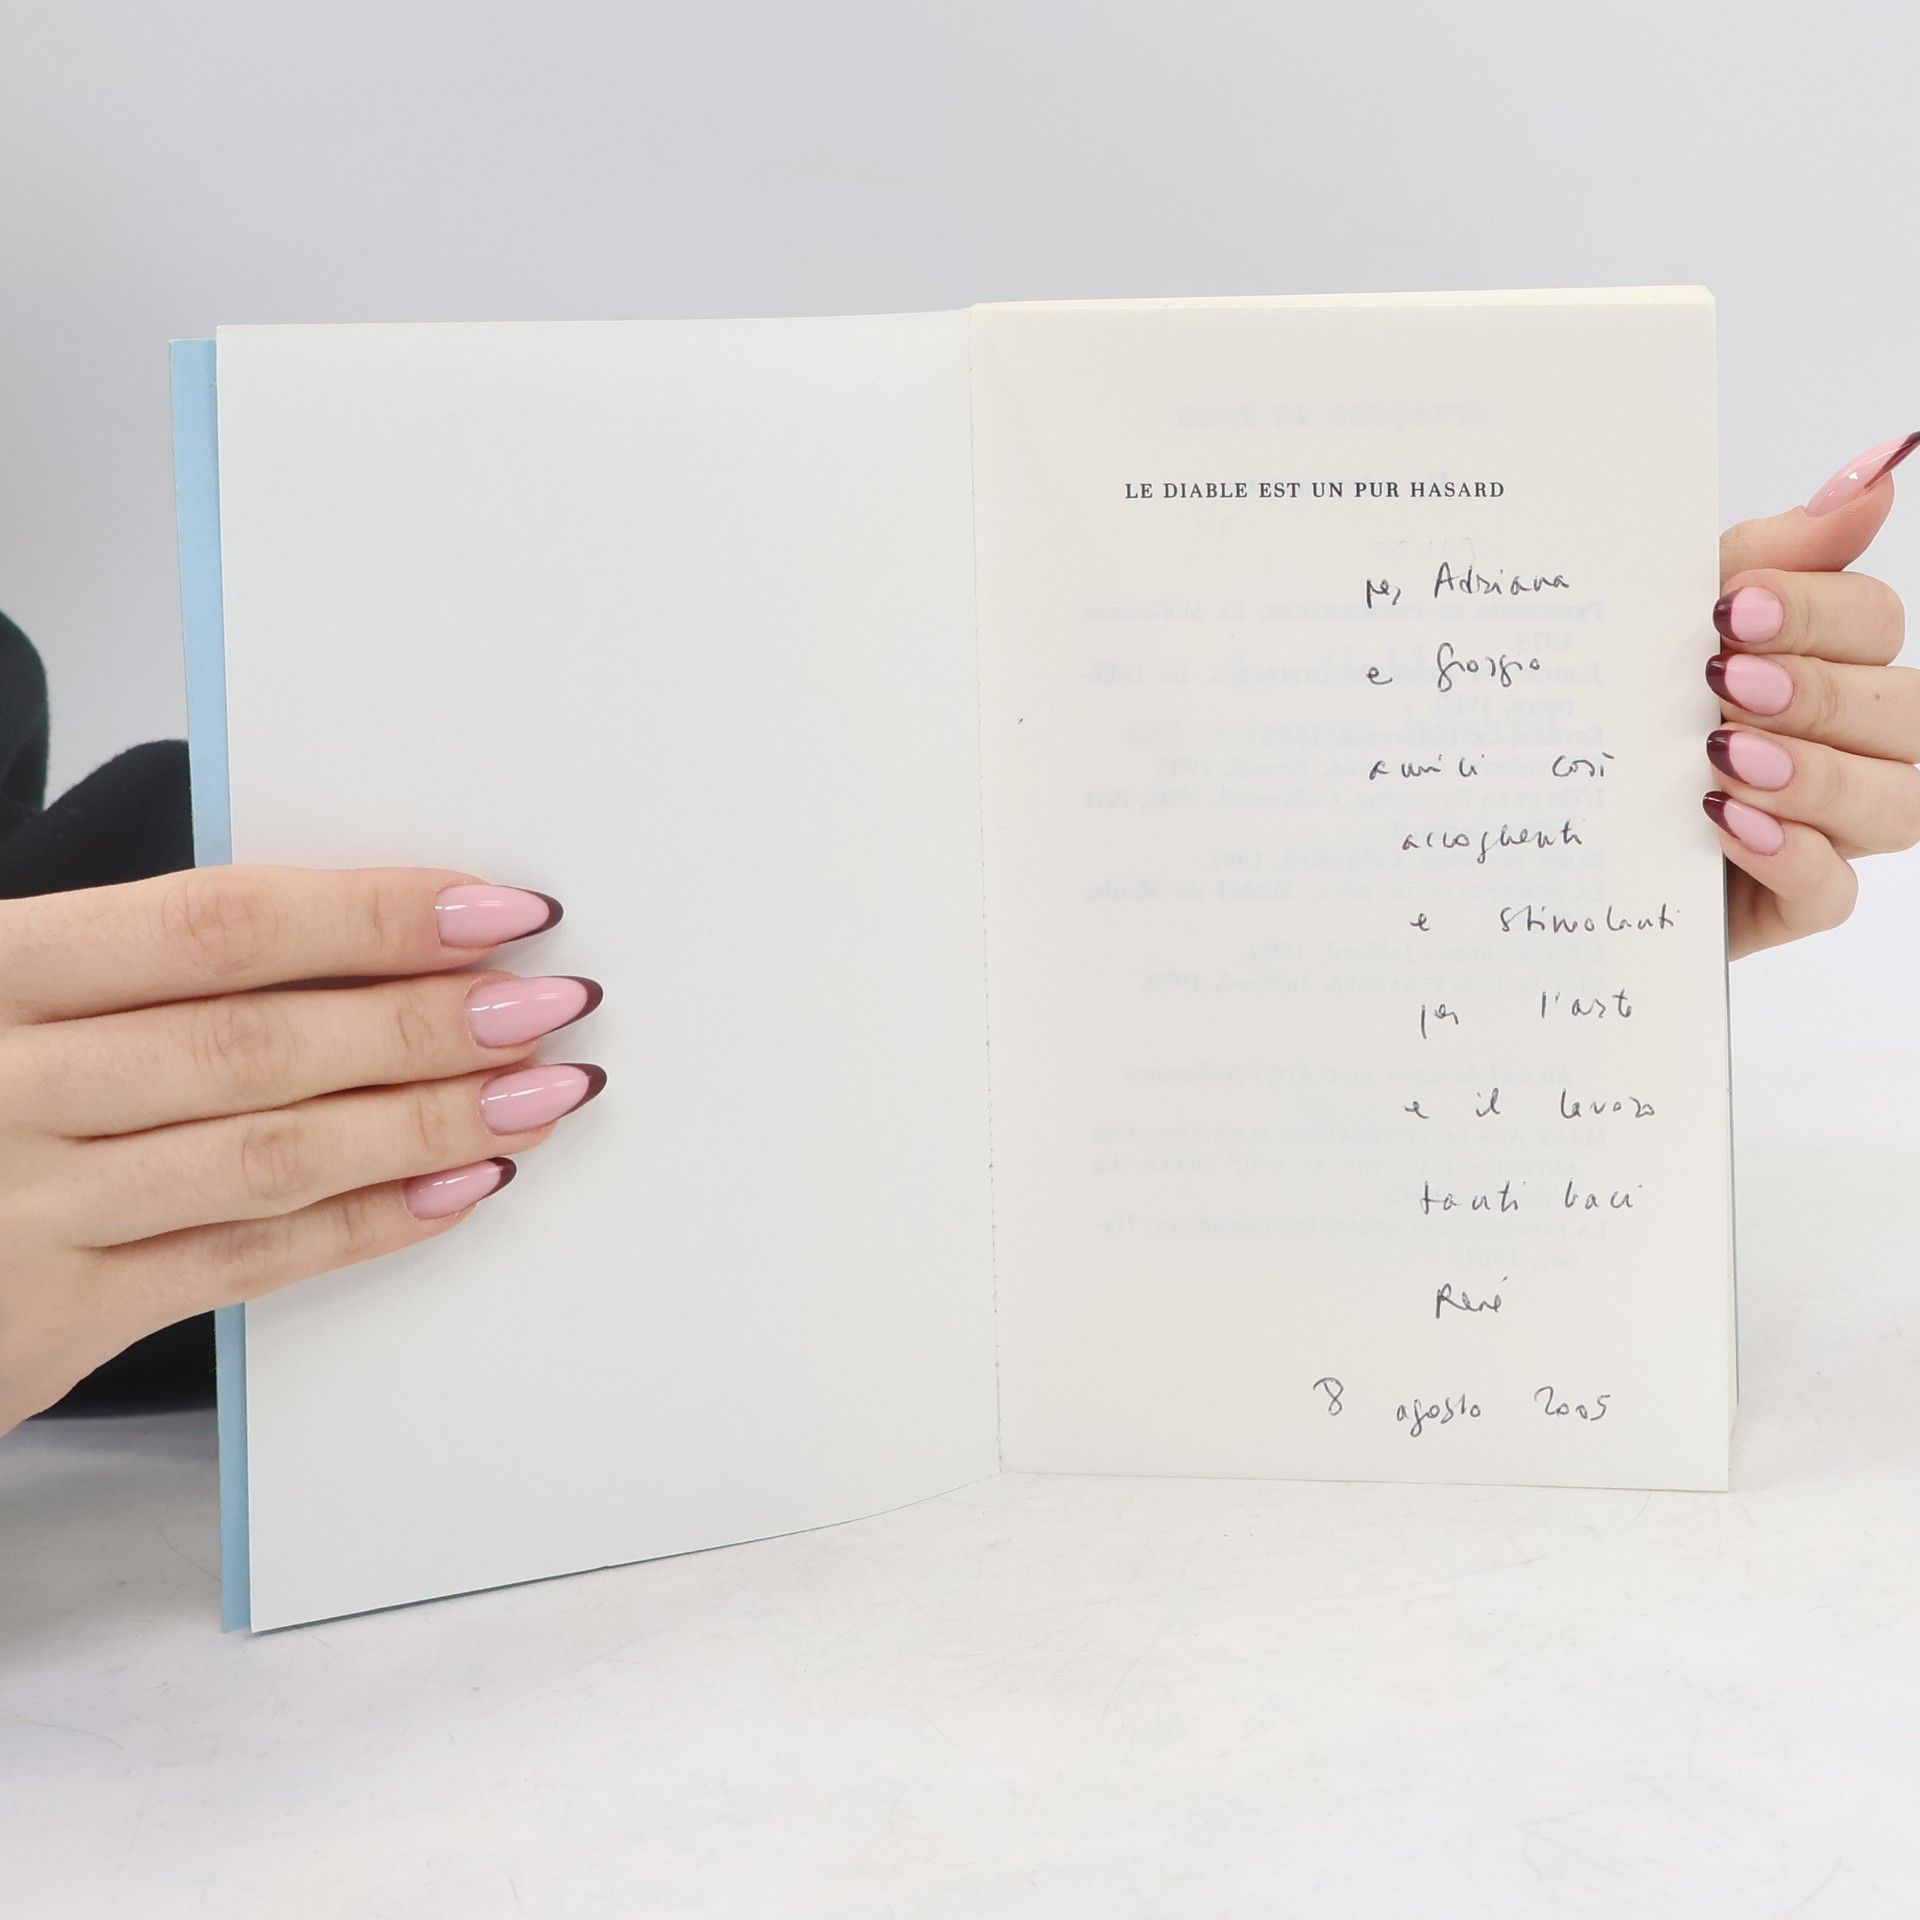 LE DIABLE EST UN PUR HASARD
per Adriana
e Giorgio
amici così
accoglienti
e stimolanti
per l'arte
e il lavoro
tanti baci
René
8 agosto 2005